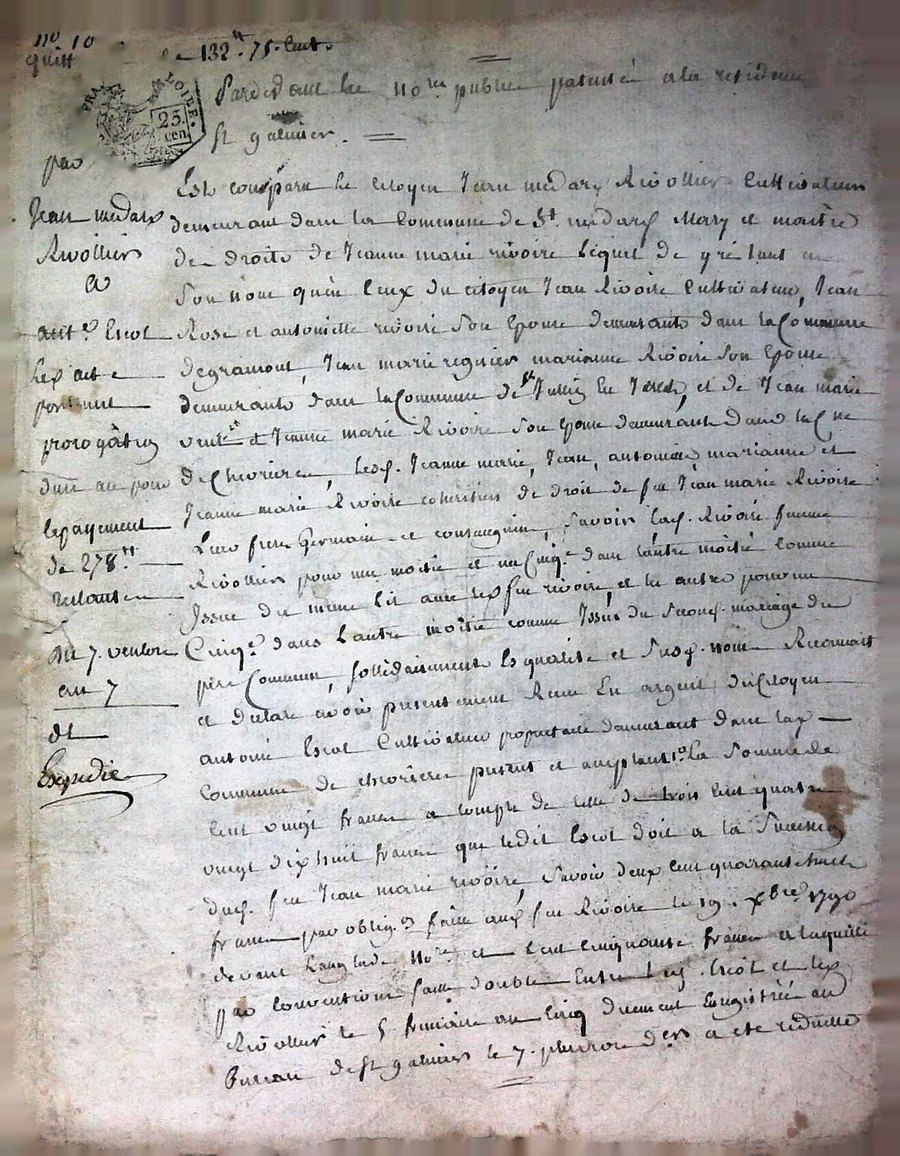 no 10
quitt
de 132 ₶. 75. Cent.
FRA
LOIRE.
25.
cen
Pardevant le no.re public patenté a la residence
St galmier.
par
Jean medard
Rivollier
a
ant.e Escot
portant
prorogation
d'un an pour
lepayement
de 278 ₶
restant
du 7. ventose
an 7
dt
Expedié
Est comparu le citoyen Jean medard Rivollier Cultivateur
demeurant dans la Commune de St. medard Mary et maitre
de droits de Jeanne marie rivoire Lequel de gré tant en
Son nom qu'en Ceux du citoyen Jean Rivoire Cultivateur, Jean
Rose et antoinette rivoire Son Epouse demeurants dans la Commune
degramont, Jean marie regnier marianne Rivoire Son Epouse
demeurants dans la Commune de St et de Jean marie
et Jeanne marie Rivoire Son Epouse demeurant dans la C.ne
de Chevrieres, Lesd. Jeanne marie, Jean, antoinette, marianne et
Jeanne marie Rivoire coheritiers de droit de feu Jean marie Rivoire
Leur frere Germain et consanguin, Savoir lad. Rivoire femme
Rivollier pour une moitié et un Cinq.e dans l'autre moitié Comme
Issue du meme lit avec led. feu rivoire, et les autres pour un
Cinq.e dans L'autre moitié comme Issus du Second mariage du
pere Commun, Sollidairement Es qualités et Susd. noms Reconnait
et declare avoir presentement Recu En argent du Citoyen
antoine Escot Cultivateur propriétaire demeurant dans lad.
Commune de chevrieres present et acceptant 1.o La Somme de
Cent vingt francs a compte de celle de trois Cent quatre
vingt dix huit francs que ledit Escot doit a la Succession
dud. feu Jean marie rivoire, Savoir deux Cent quarante huit
francs par oblig.on faite aud. feu Rivoire le 19. xbre 1790
devant Langlade no.re et Cent Cinquante francs a laquelle
par convention faite double Entre led. Escot et led.
Rivollier le 5 frimaire an Cinq duement Enregistrée au
Bureau de St galmier le 7. pluviose d.er a eté reduitte